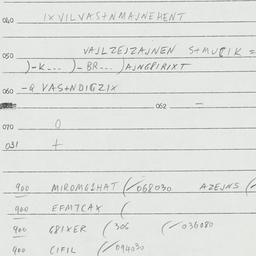 040 IXVILVAS+NMAJNEHENT
VAJLZEJZAJNEN S+MUCIK =
050 )-K--- )-BR--- )AJNGRIRIXT
060 -Q VAS+NDIGZIX
062 -
070 0
031 +
900 MIROMGIHAT (/068030 AZEJNS (/
900 EFMTCAX (
900 GRIXER (306 (/036080
900 CIFIL (/094030